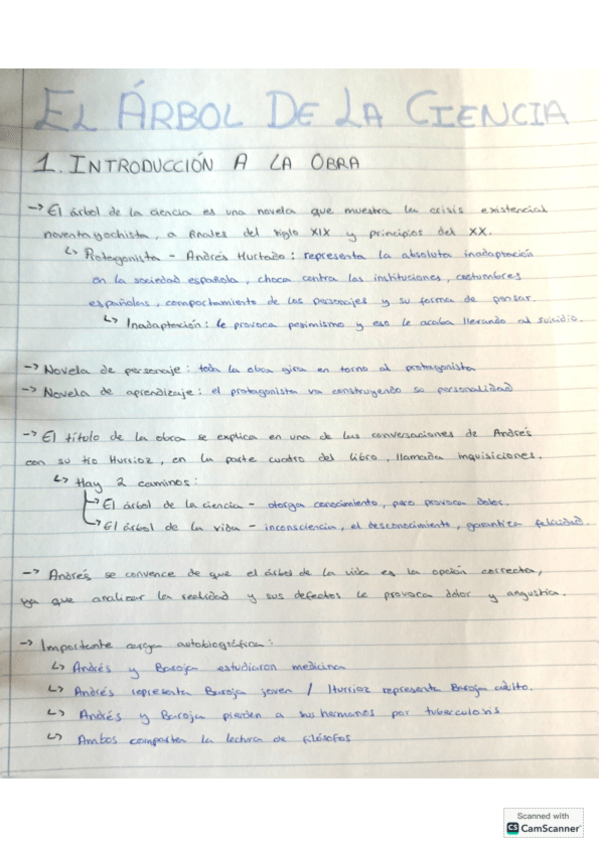 EL ÁRBOL DE LA CIENCIA
1. INTRODUCCIÓN A LA OBRA
-> El árbol de la ciencia es una novela que muestra la crisis existencial
noventayochista, a finales del siglo XIX y principios del XX.
↳ Protagonista - Andrés Hurtado: representa la absoluta inadaptación
en la sociedad española, choca contra las instituciones, costumbres
españolas, comportamiento de los personajes y su forma de pensar.
↳ Inadaptación: le provoca pesimismo y eso le acaba llevando al suicidio.
-> Novela de personaje: toda la obra gira en torno al protagonista
-> Novela de aprendizaje: el protagonista va construyendo su personalidad
-> El título de la obra se explica en una de las conversaciones de Andrés
con su tío Iturrioz, en la parte cuatro del libro, llamada inquisiciones.
↳ Hay 2 caminos:
↳ El árbol de la ciencia - otorga conocimiento, pero provoca dolor.
↳ El árbol de la vida - inconsciencia, el desconocimiento, garantiza felicidad.
-> Andrés se convence de que el árbol de la vida es la opción correcta,
ya que analizar la realidad y sus defectos le provoca dolor y angustia.
-> Importante carga autobiográfica:
↳ Andrés y Baroja estudiaron medicina
↳ Andrés representa Baroja joven / Iturrioz representa Baroja adulto.
↳ Andrés y Baroja pierden a sus hermanos por tuberculosis
↳ Ambos comparten la lectura de filósofos
Scanned with
CS CamScanner